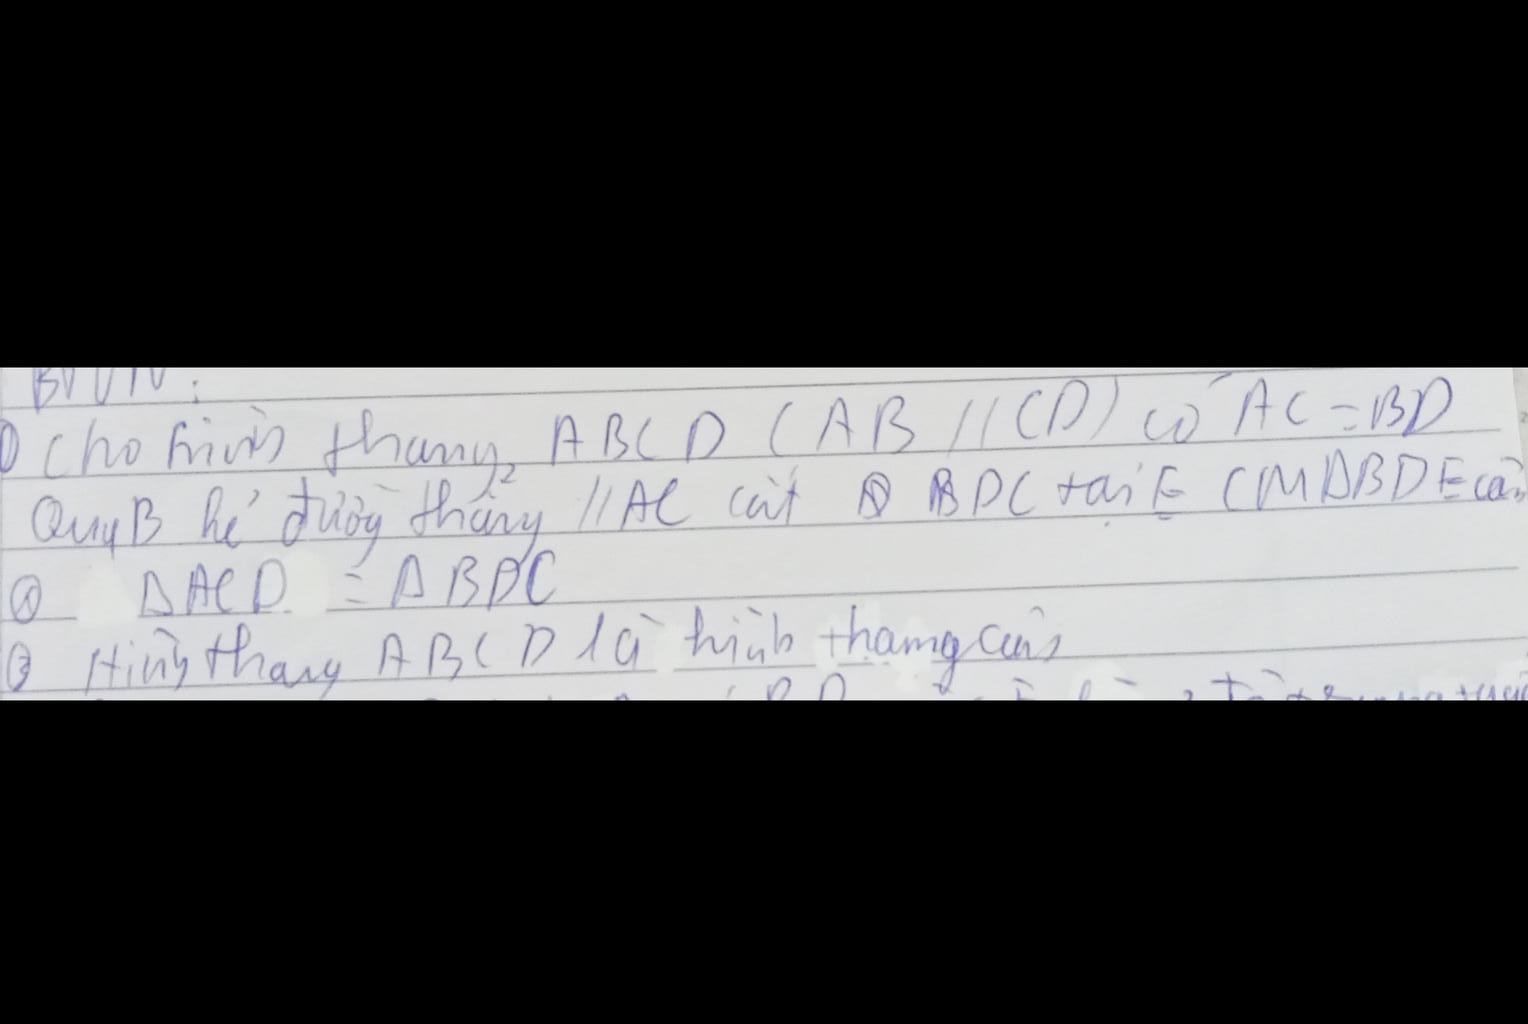 BTVN:
① Cho hình thang ABCD (AB // CD) có AC = BD
Qua B kẻ đường thẳng // AC cắt DC tại E CM ΔBDE cân
② ΔACD = ΔBDC
③ Hình thang ABCD là hình thang cân